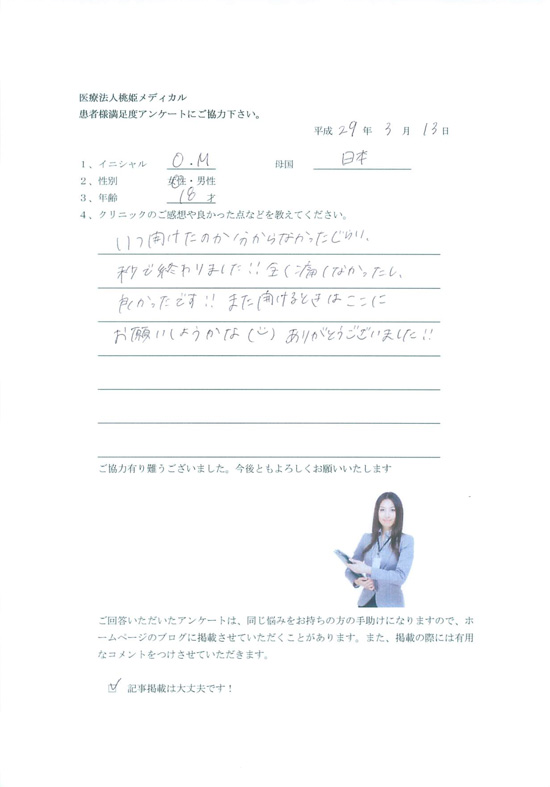 医療法人桃姫メディカル
患者様満足度アンケートにご協力下さい。
平成 29 年 3 月 13 日
1、イニシャル O.M 母国 日本
2、性別 女性・男性
3、年齢 18 才
4、クリニックのご感想や良かった点などを教えてください。
いつ開けたのか分からなかったじらい、
秒で終わりました!! 全く痛くなかったし、
良かったです!! また開けるときはここに
お願いしようかな(ت) ありがとうございました!!
ご協力有り難うございました。今後ともよろしくお願いいたします
ご回答いただいたアンケートは、同じ悩みをお持ちの方の手助けになりますので、ホ
ームページのブログに掲載させていただくことがあります。また、掲載の際には有用
なコメントをつけさせていただきます。
記事掲載は大丈夫です!